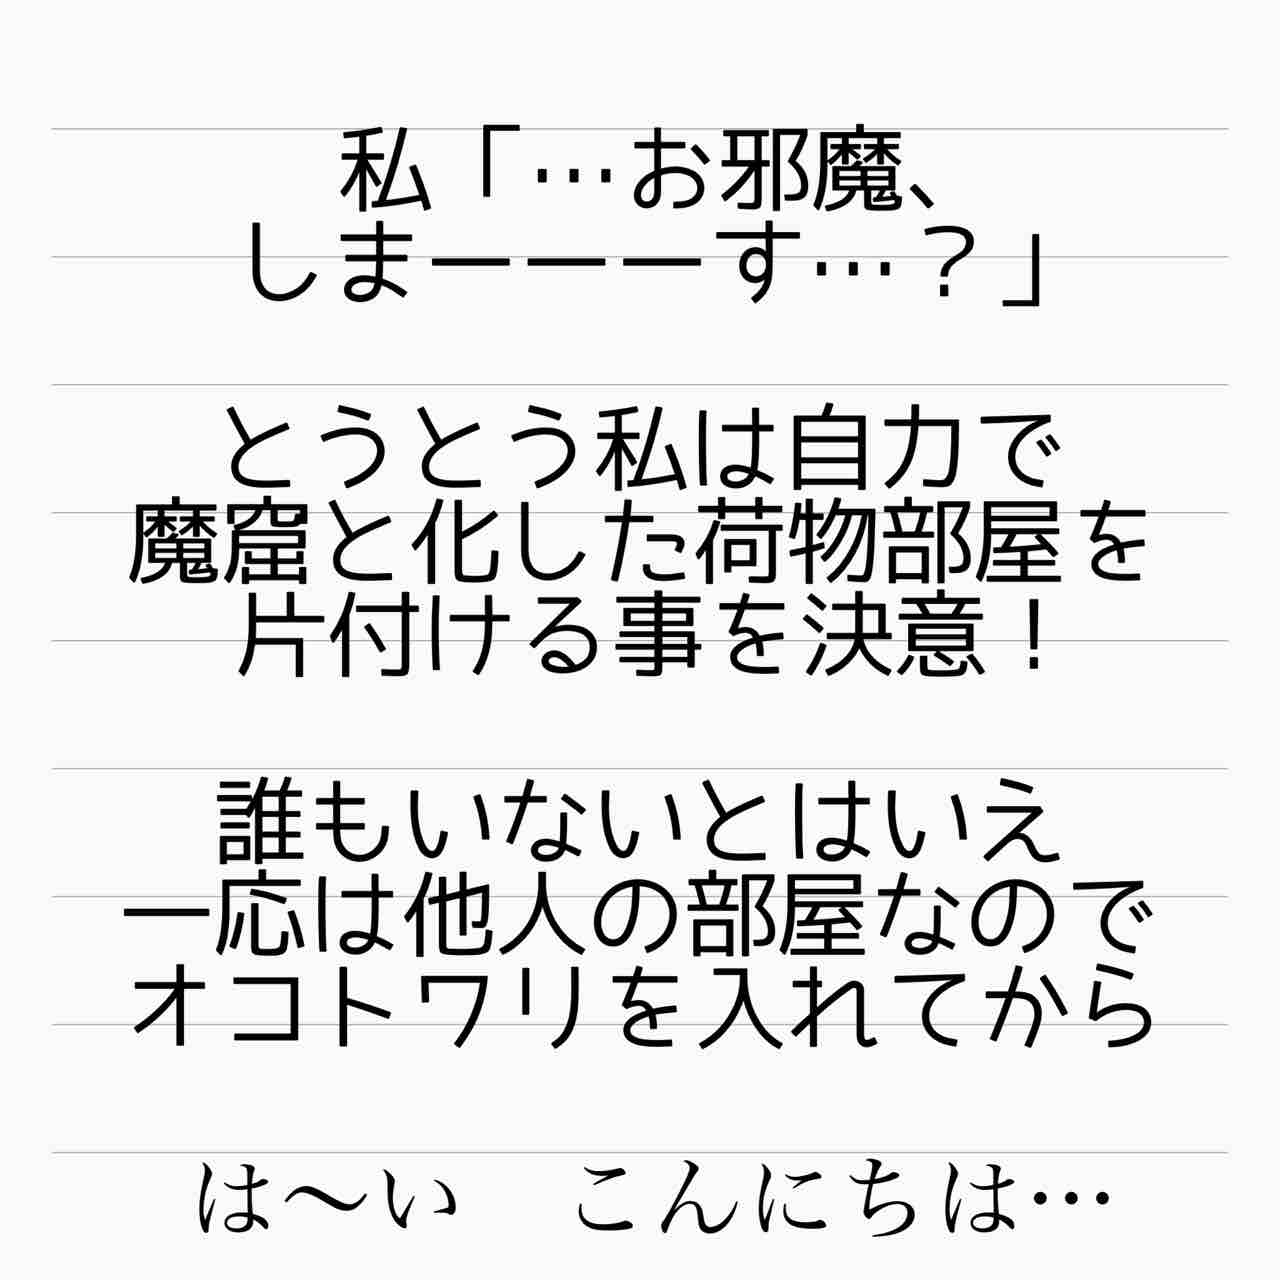 私「…お邪魔、
しまーーーす…？」
とうとう私は自力で
魔窟と化した荷物部屋を
片付ける事を決意！
誰もいないとはいえ
一応は他人の部屋なので
オコトワリを入れてから
は〜い　こんにちは…